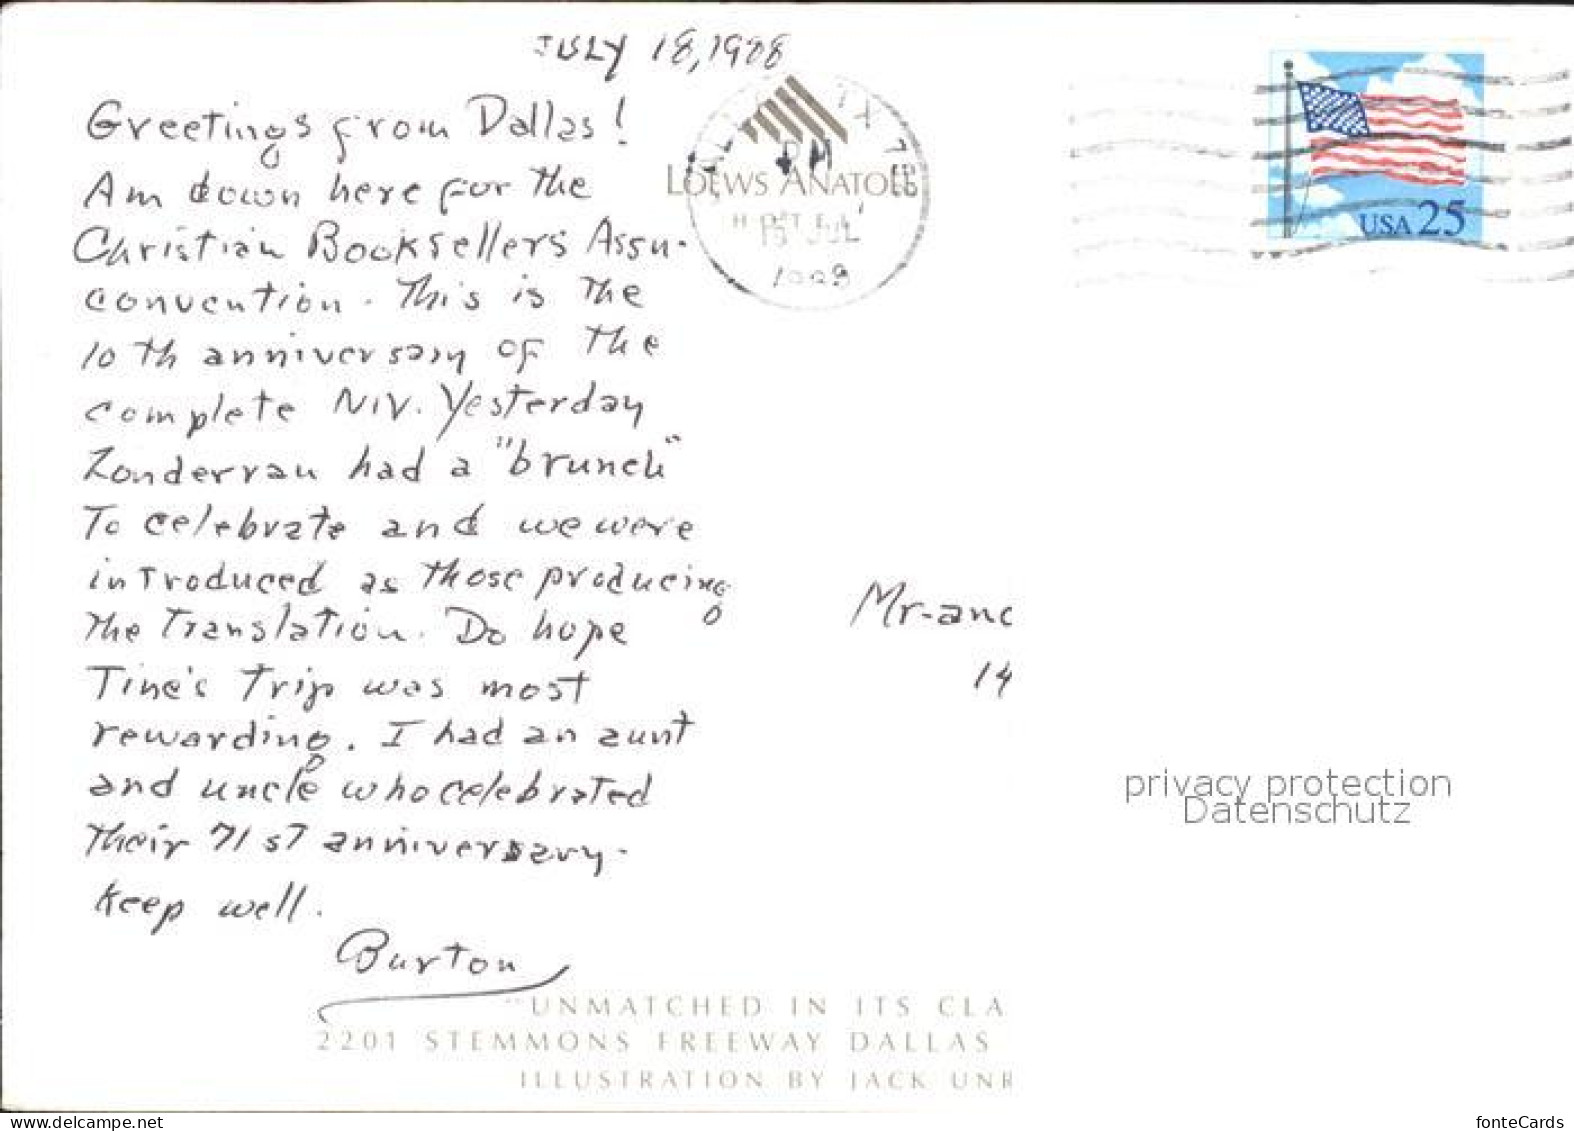 July 18, 1988
Greetings from Dallas!
Am down here for the
Christian Booksellers Assn.
convention. This is the
10th anniversary of the
complete NIV. Yesterday
Zondervan had a "brunch"
To celebrate and we were
introduced as those producing
the translation. Do hope
Tine's trip was most
rewarding. I had an aunt
and uncle who celebrated
their 71st anniversary.
Keep well.
Burton
LOEWS ANATOLE
PM
JUL
USA 25
Mr. and
14
privacy protection
Datenschutz
"UNMATCHED IN ITS CLA
2201 STEMMONS FREEWAY DALLAS
ILLUSTRATION BY JACK UNR
www.delcampe.net
fonteCards